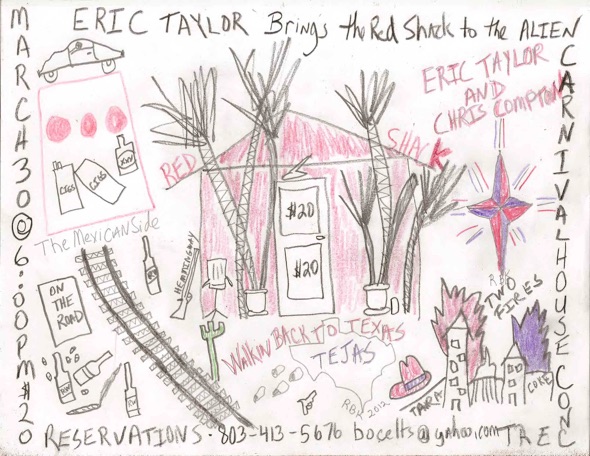 ERIC TAYLOR Brings the Red Shack to the ALIEN
CARNIVAL HOUSE CONC
TREC
MARCH 30 @ 6:00 PM $20
ERIC TAYLOR
AND
CHRIS COMPTON
RED SHACK
CIGS
CIGS
XXX
$20
$20
The Mexican Side
HEMINGWAY
ON
THE
ROAD
TWO
FIRES
WALKIN BACK TO TEXAS
TEJAS
TARA
2012
RESERVATIONS · 803-413-5676 bocelts@yahoo.com